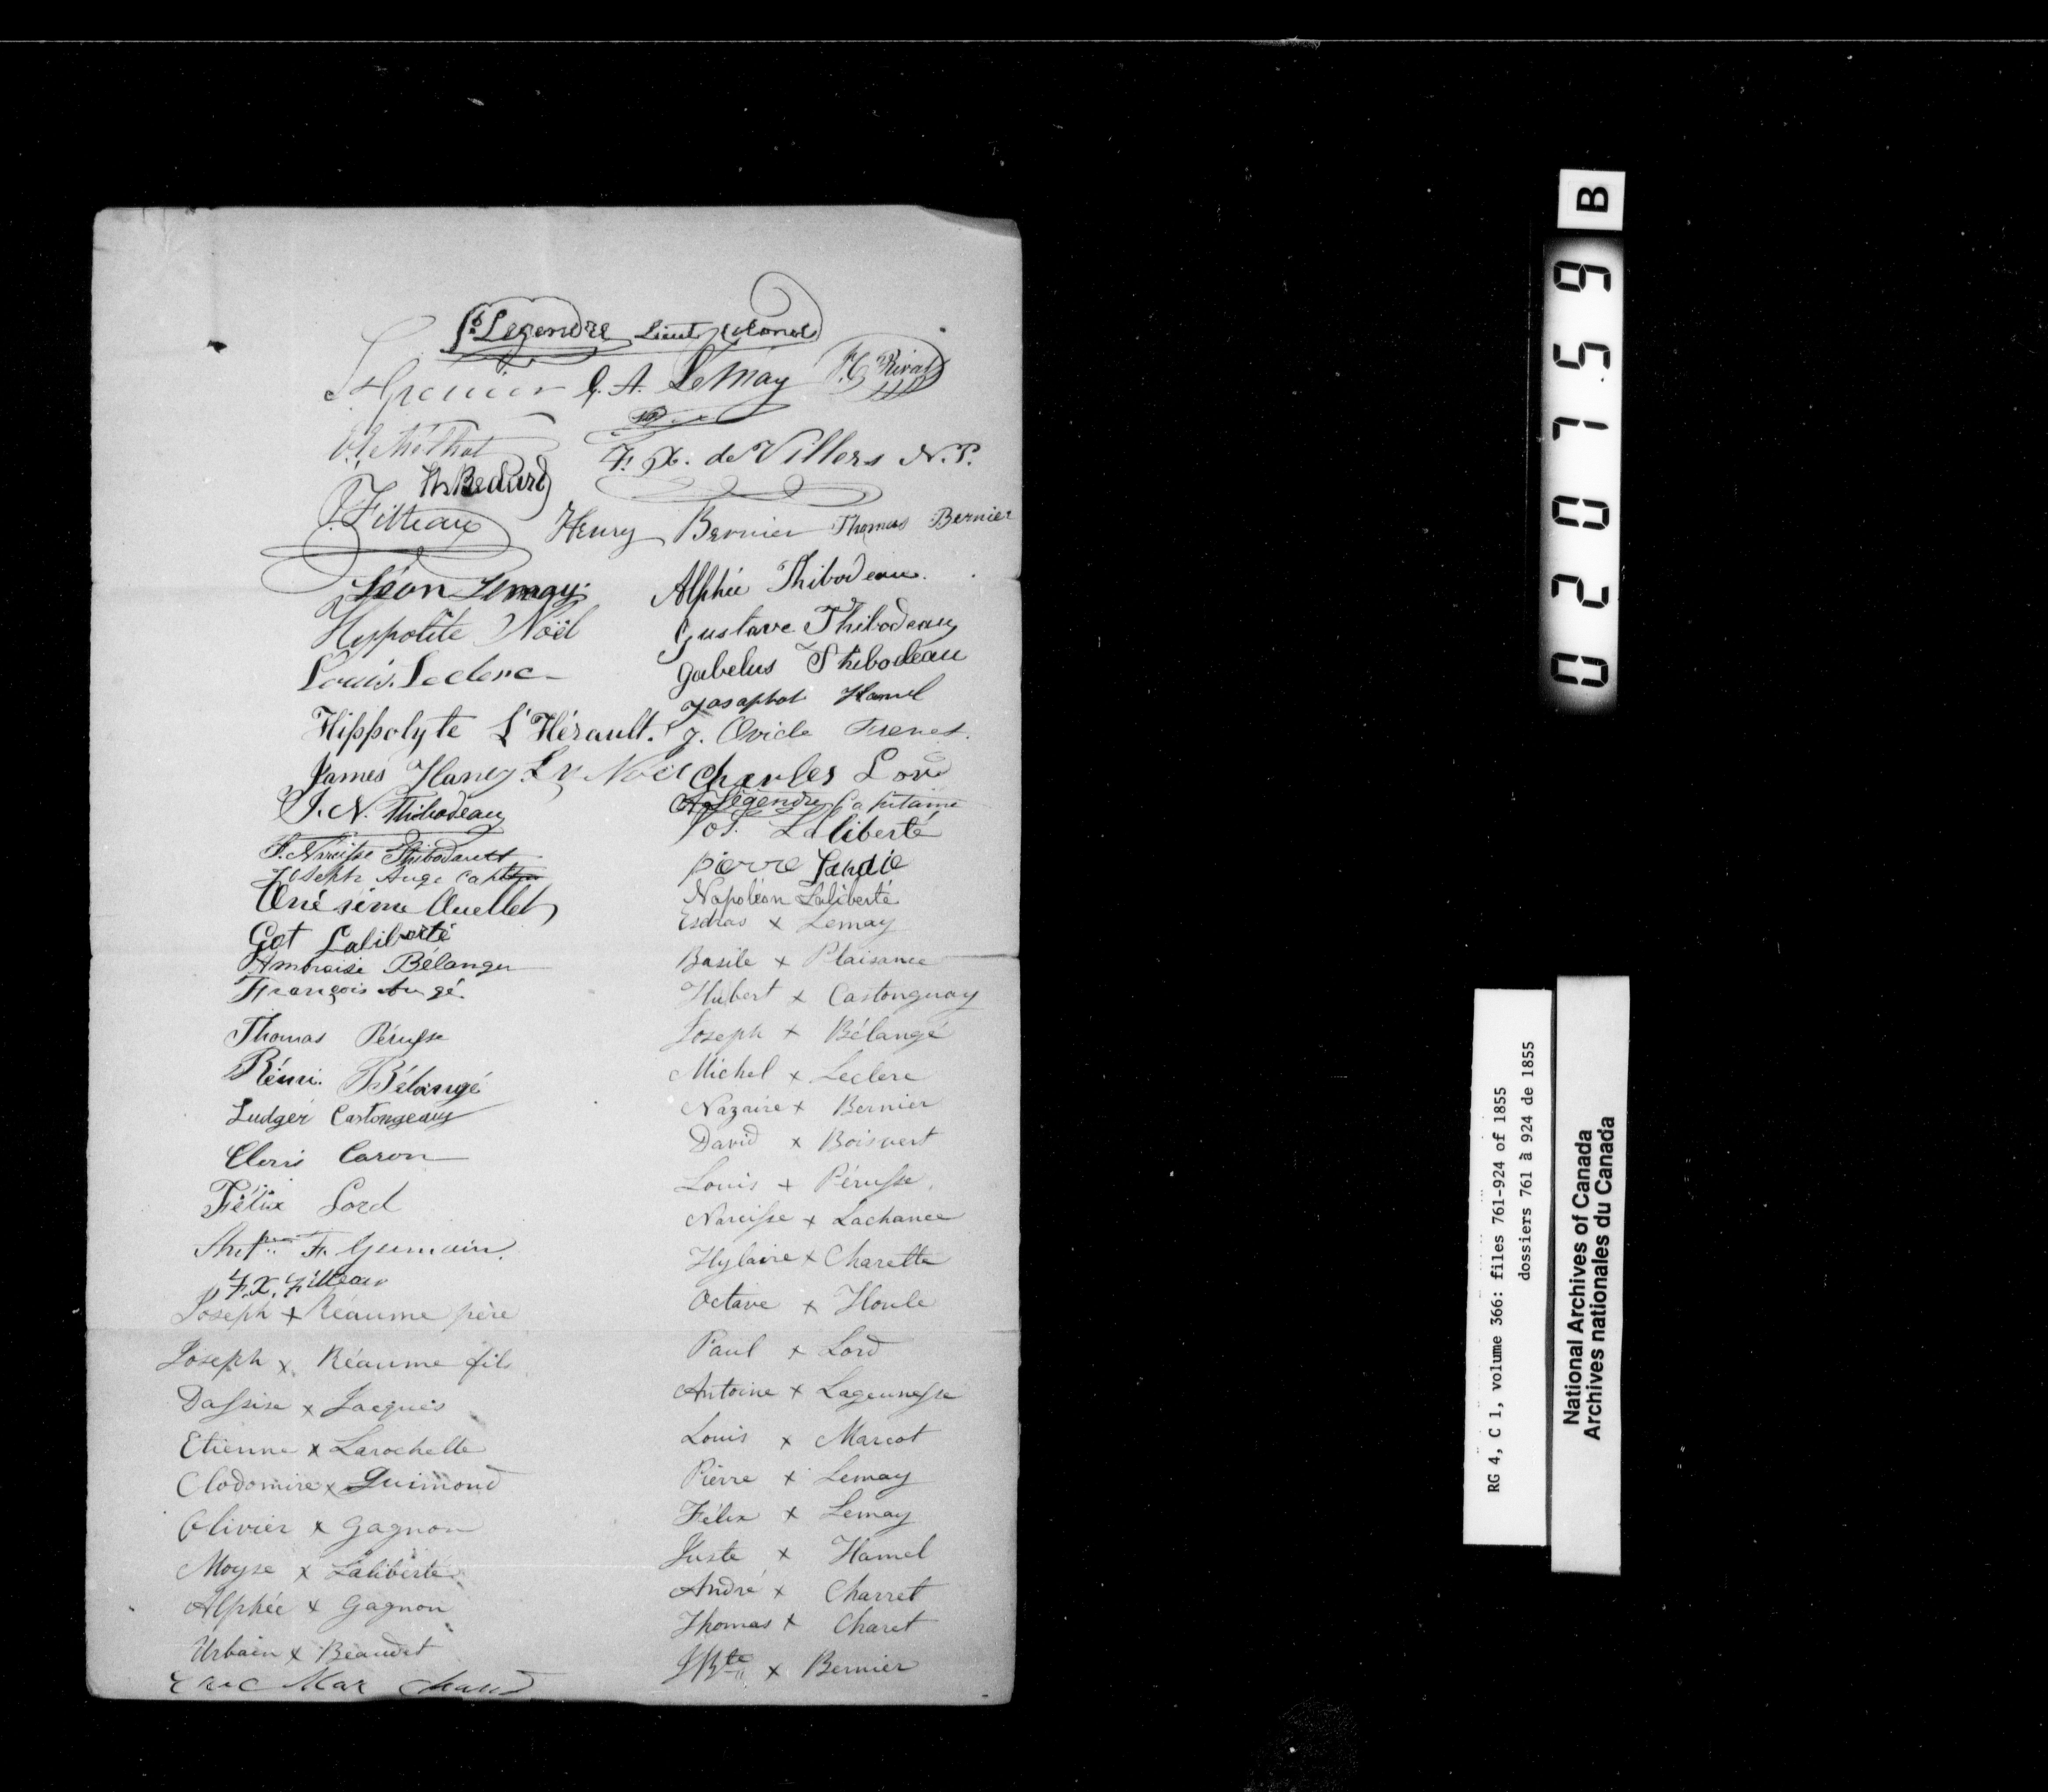 Legendre Lieut Colonel
L. A. LeMay
Rival
F. X. de Villers N. P.
Bedard
Filteau
Henry Bernier Thomas Bernier
Léon Lemay
Alphée Thibodeau
Hyppolite Noël
Gustave Thibodeau
Louis Leclerc
Gabelus Thibodeau
Josaphat Hamel
Hippolyte L'Hérault.
J. Ovide Frenet
James Haney L. N. Noël
Charles Lord
J. N. Thibodeau
Legendre Capitaine
Jos. Laliberté
F. Narcisse Thibodault
Pierre
Joseph Auge Capt
Napoléon Laliberté
Onésime Ouellet
Esdras x Lemay
Got Laliberté
Ambroise Bélanger
Basile x Plaisance
François Augé
Hubert x Castonguay
Thomas Pérusse
Joseph x Bélangé
Rémi Bélangé
Michel x Leclerc
Ludger Castongeauy
Nazaire x Bernier
David x Boisvert
Clovis Caron
Louis x Pérusse
Félix Lord
Narcisse x Lachance
F. Germain
Hylaire x Charette
F. X. Filteau
Octave x Houle
Joseph x Réaume père
Paul x Lord
Joseph x Réaume fils
Antoine x Lageunesse
Dassise x Jacques
Louis x Marcot
Etienne x Larochelle
Pierre x Lemay
Clodomire x Guimond
Félix x Lemay
Olivier x Gagnon
Juste x Hamel
Moyse x Laliberté
André x Charret
Alphée x Gagnon
Thomas x Charet
Urbain x Beaudet
JBte x Bernier
Mar chand
020759
B
RG 4, C 1, volume 366: files 761-924 of 1855
dossiers 761 à 924 de 1855
National Archives of Canada
Archives nationales du Canada